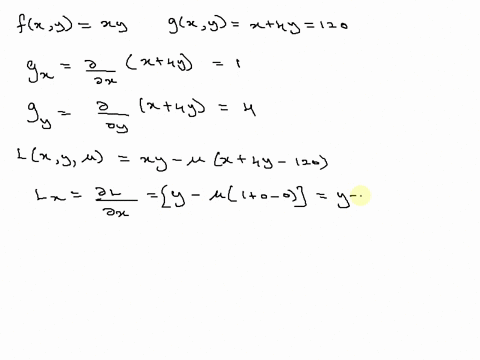 f(x,y) = xy g(x,y) = x+4y = 120
g_x = ∂/∂x (x+4y) = 1
g_y = ∂/∂y (x+4y) = 4
L(x,y,μ) = xy - μ(x+4y-120)
L_x = ∂L/∂x = [y - μ(1+0-0)] = y-